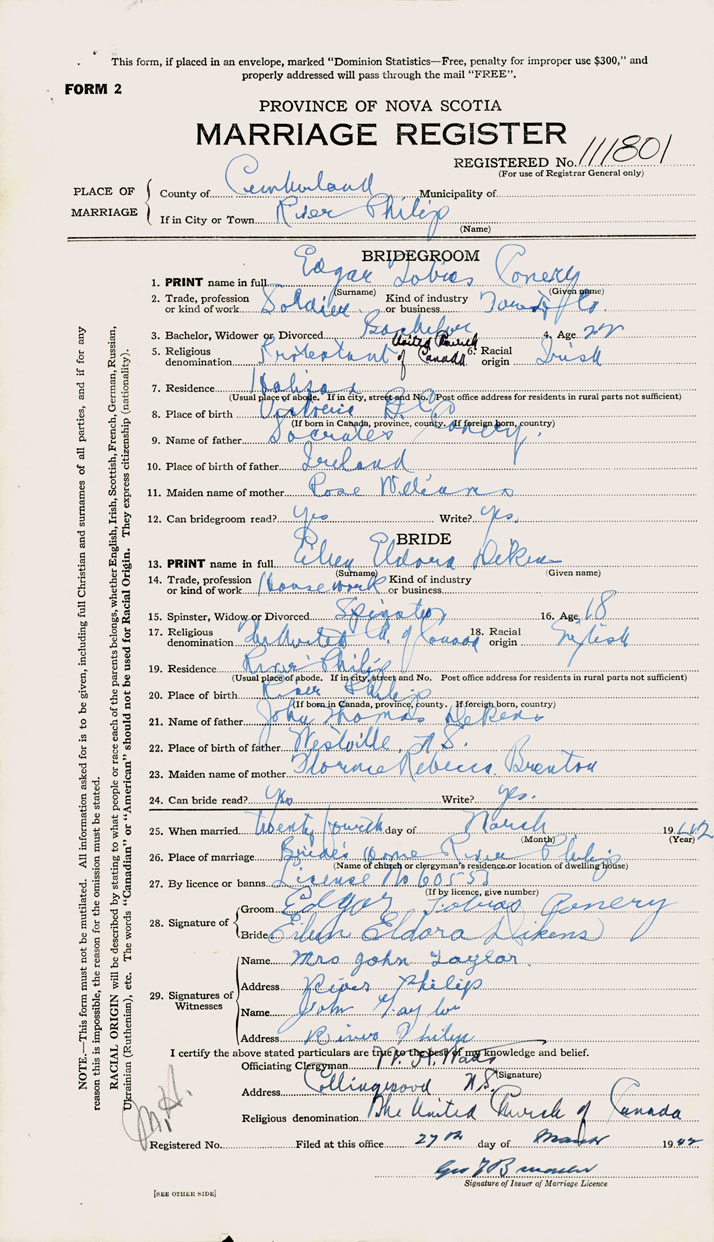 This form, if placed in an envelope, marked "Dominion Statistics—Free, penalty for improper use $300," and
properly addressed will pass through the mail "FREE".
FORM 2
PROVINCE OF NOVA SCOTIA
MARRIAGE REGISTER
REGISTERED No. 111801
(For use of Registrar General only)
PLACE OF MARRIAGE
County of Cumberland Municipality of
If in City or Town River Philip
(Name)
BRIDEGROOM
1. PRINT name in full Edgar Tobias Conery
(Surname) (Given name)
2. Trade, profession or kind of work Soldier Kind of industry or business
3. Bachelor, Widower or Divorced Bachelor 4. Age 22
5. Religious denomination Protestant United Church of Canada 6. Racial origin Irish
7. Residence Halifax
(Usual place of abode. If in city, street and No. Post office address for residents in rural parts not sufficient)
8. Place of birth Victoria B.C.
(If born in Canada, province, county. If foreign born, country)
9. Name of father Socrates Conery.
10. Place of birth of father Ireland
11. Maiden name of mother Rose Williams
12. Can bridegroom read? Yes Write? Yes.
BRIDE
13. PRINT name in full Eileen Eldora Dikens
(Surname) (Given name)
14. Trade, profession or kind of work Housework Kind of industry or business
15. Spinster, Widow or Divorced Spinster 16. Age 18
17. Religious denomination The United Ch. of Canada 18. Racial origin English
19. Residence River Philip
(Usual place of abode. If in city, street and No. Post office address for residents in rural parts not sufficient)
20. Place of birth River Philip
(If born in Canada, province, county. If foreign born, country)
21. Name of father John Thomas Dikens
22. Place of birth of father Westville, N.S.
23. Maiden name of mother Rebecca Brenton
24. Can bride read? Yes Write? Yes.
25. When married twenty fourth day of March 1942
(Month) (Year)
26. Place of marriage Bride's Home River Philip
(Name of church or clergyman's residence or location of dwelling house)
27. By licence or banns License No 60553
(If by licence, give number)
28. Signature of
Groom Edgar Tobias Conery
Bride Eileen Eldora Dikens
29. Signatures of Witnesses
Name Mrs John Taylor
Address River Philip
Name John Taylor
Address River Philip
I certify the above stated particulars are true to the best of my knowledge and belief.
Officiating Clergyman W. H. Watts
(Signature)
Address Collingwood N.S.
Religious denomination The United Church of Canada
Registered No. Filed at this office 27th day of March 1942
Signature of Issuer of Marriage Licence
[SEE OTHER SIDE]
NOTE.—This form must not be mutilated. All information asked for is to be given, including full Christian and surnames of all parties, and if for any
reason this is impossible, the reason for the omission must be stated.
RACIAL ORIGIN will be described by stating to what people or race each of the parents belongs, whether English, Irish, Scottish, French, German, Russian,
Ukrainian (Ruthenian), etc. The words "Canadian" or "American" should not be used for Racial Origin. They express citizenship (nationality).
M.H.